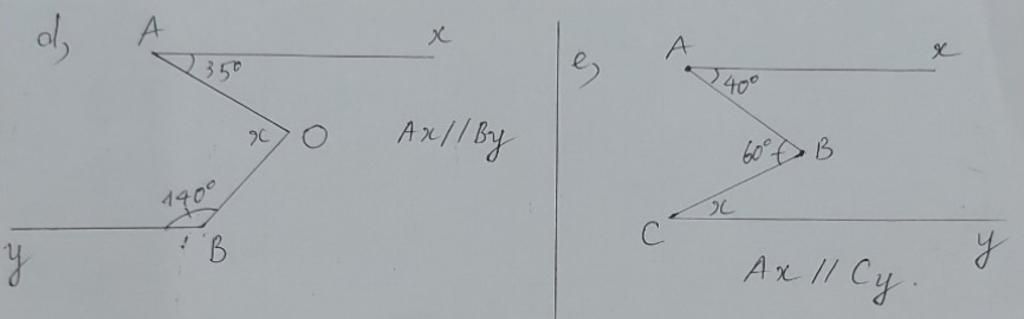 d,
A
x
35°
x
O
Ax//By
140°
y
B
e,
A
x
40°
60°
B
x
C
y
Ax // Cy.